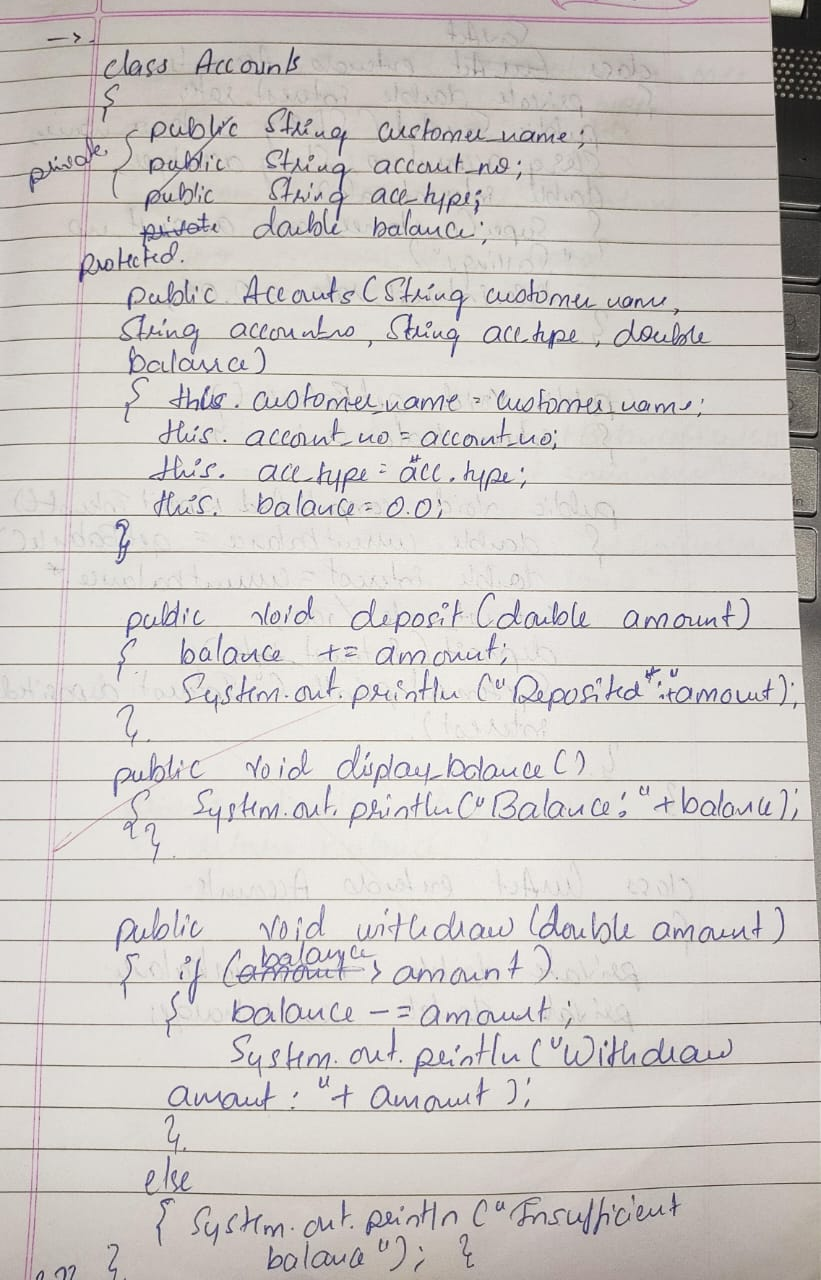 →.
class Accounts
{
public String customer_name;
private { public String account_no;
public String acc_type;
private double balance;
protected.
public Accounts (String customer name,
String account no, String acc type, double
balance)
{ this. customer_name = customer_name;
this. account_no = account_no;
this. acc_type = acc_type;
this. balance = 0.0;
}
public void deposit (double amount)
{ balance += amount;
System.out.println ("Deposited : "+amount);
}
public void display_balance ()
{ System.out.println ("Balance: " + balance);
}
public void withdraw (double amount)
{ if (amount balance > amount)
{ balance -= amount;
System.out.println ("Withdraw
amount : " + amount );
}
else
{ System.out.println ("Insufficient
} balance"); }